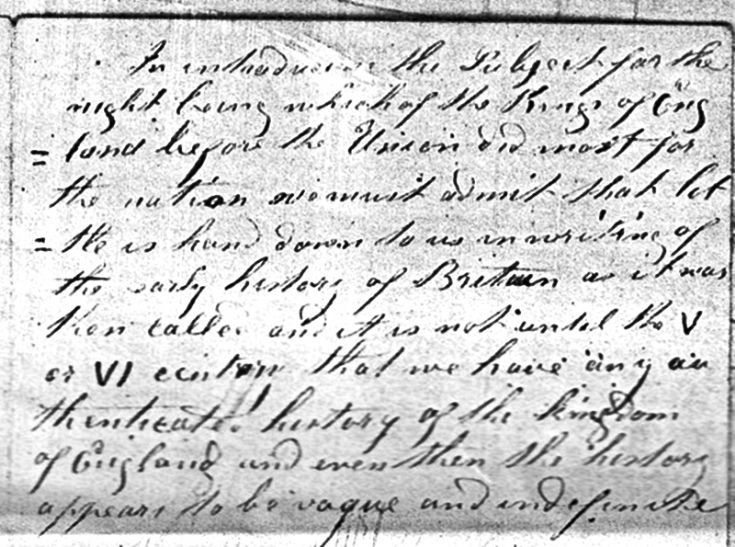 In introducing the Subject for the
night being which of the Kings of Eng
= land before the Union did most for
the nation we must admit that lit
= tle is hand down to us in writing of
the early history of Britain as it was
then called and it is not until the V
or VI century that we have any au
thenticated history of the kingdom
of England and even then the history
appears to be vague and indefinite